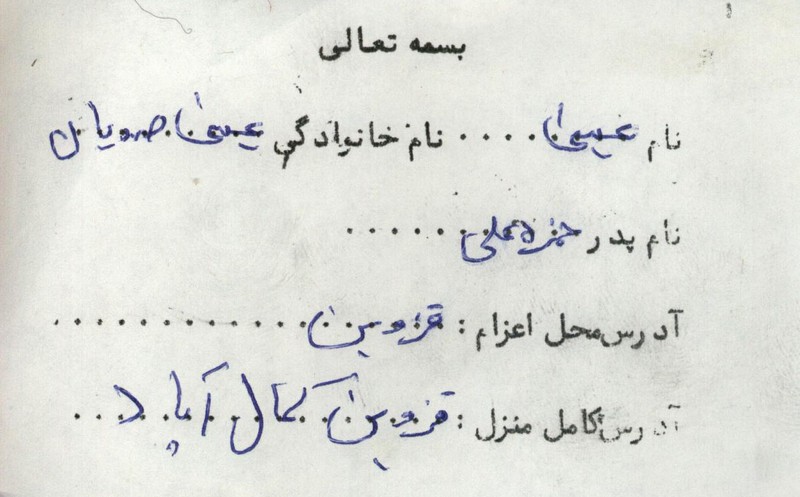 بسمه تعالی
نام عیسی .... نام خانوادگی عیسی
نام پدر حمزه علی ......
آدرس محل اعزام : قزوین .............
آدرس کامل منزل : قزوین کمال آباد ...